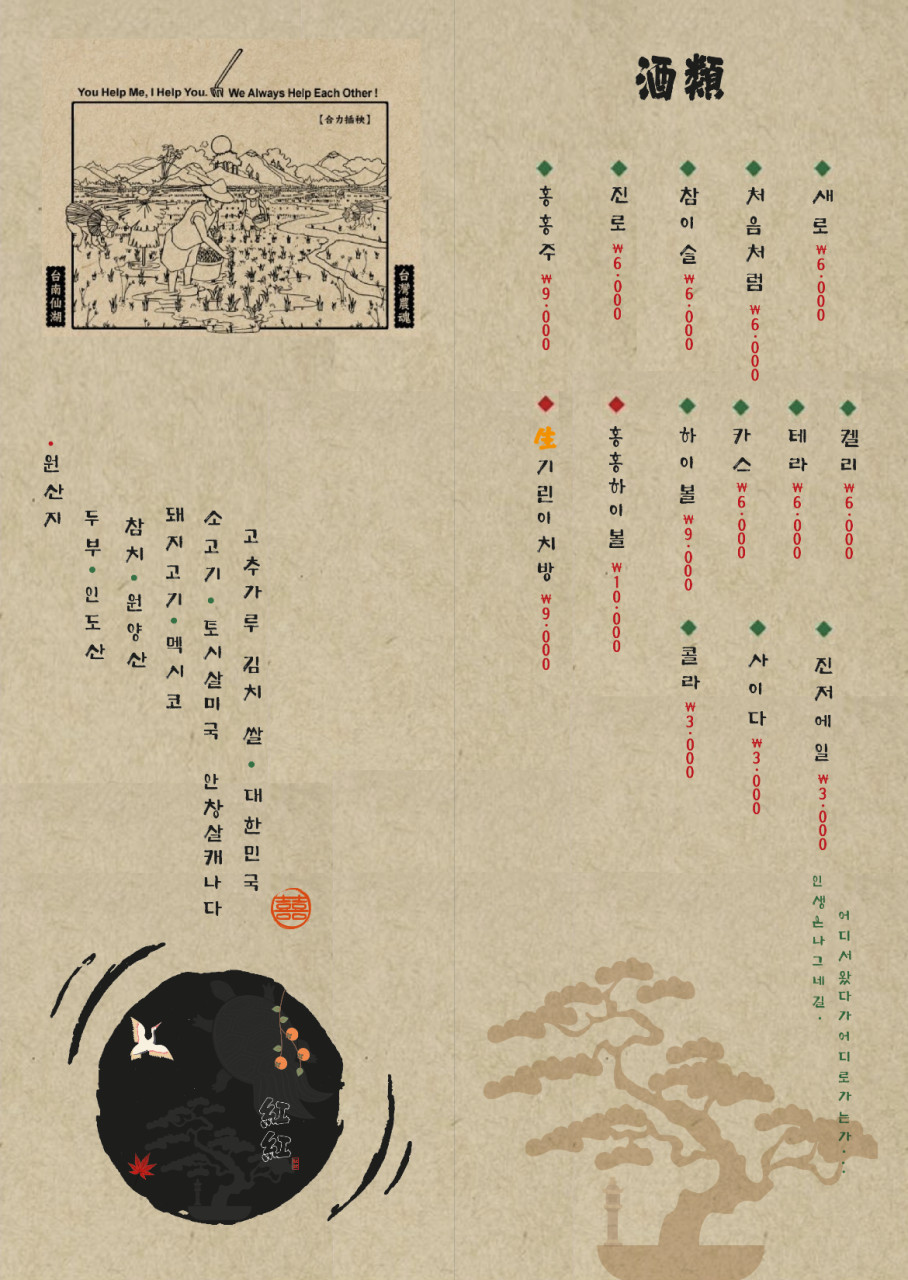 You Help Me, I Help You. We Always Help Each Other !
【合力插秧】
台南仙湖
台灣農魂
•원산지
두부•인도산
참치•원양산
돼지고기•멕시코
소고기•토시살미국 안창살캐나다
고추가루 김치 쌀•대한민국
囍
紅紅
酒類
새로 ₩6.000
처음처럼 ₩6.000
참이슬 ₩6.000
진로 ₩6.000
홍홍주 ₩9.000
켈리 ₩6.000
테라 ₩6.000
카스 ₩6.000
하이볼 ₩9.000
홍홍하이볼 ₩10.000
生기린이치방 ₩9.000
진저에일 ₩3.000
사이다 ₩3.000
콜라 ₩3.000
인생은나그네길.
어디서왔다가어디로가는가...